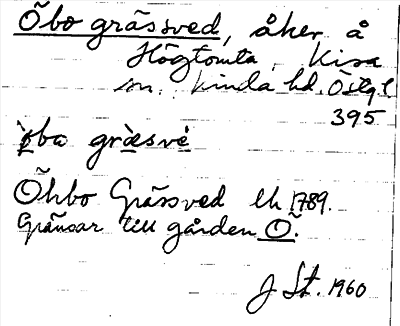 Õbo grässved, åker å
Högtomta, Kisa
sn. Kinda hd. Östgl
395
òba græsvé
Õhbo Grässved lh 1789.
Gränsar till gården Õ.
J St. 1960